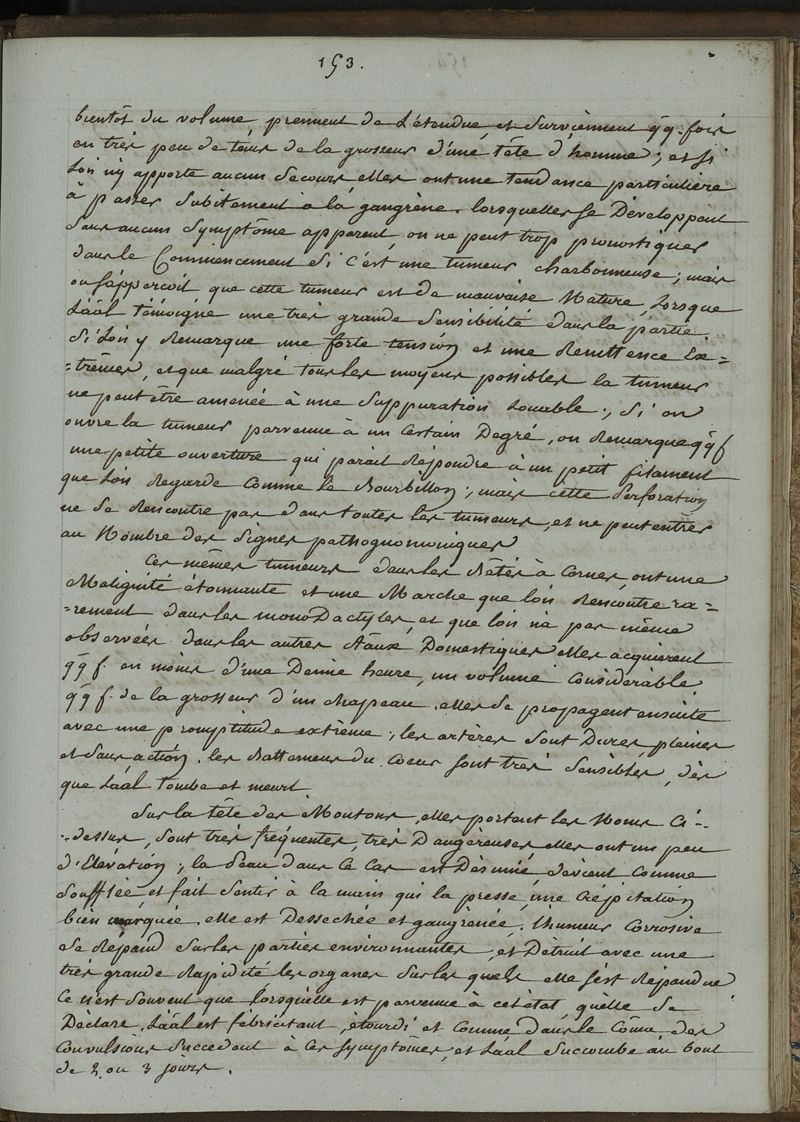 153.
bientôt du volume, prennent de L'étendue, et Surviennent qq. fois
en très peu de tems de la grosseur d'une tête d'homme; et si
Lon n'y apporte aucun Secours elles ont une tendance particulière
à passer Subitement a la gangrène. lorsquelles se Développent
Sans aucun Symptôme apparent, on ne peut trop pronostiquer
dans le Commencement Si c'est une tumeur charbonneuse; mais
on s'apperçoit que cette tumeur est de mauvaise Nature, Lorsque
Lâál témoigne une très grande Sensibilité dans la partie,
Si Lon y Remarque une forte tension et une Renittence Ex=
=trêmes, et que malgré tous les moyens possibles la tumeur
ne peut être amenée à une Suppuration Louable; Si on
ouvre la tumeur parvenue à un Certain Degré, on Remarque qq f
une petite ouverture qui parait Répondre à un petit filament
que Lon Regarde Comme le Bourbillon; mais cette Perforation
ne Se Rencontre pas dans toutes les tumeurs, et ne peut entrer
au Nombre des Signes pathognomoniques
Ces mêmes tumeurs dans les Bêtes à Cornes, ont une
Malignité étonnante et une Marche que lon Rencontre ra=
=rement dans les monoDactyles, et que lon n'a pas même
observée dans les autres Aáux Domestiques elles acquièrent
qq f en moins d'une Demie heure, un volume Considérable
qq f de la grosseur d'un chapeau. elles Se propagent ensuite
avec une promptitude extrême; les artères Sont Dures, pleines
et Sans action. les Battemens du Coeur sont très Sensibles, dès
que Lâál tombe et meurt.
Sur la tête des Moutons, elles portent les Noms Ci-
-dessus, Sont très fréquentes, très Dangereuses, elles ont un peu
d'Elévation; la Peau dans Ce Cas est Désunie, devient Comme
Soufflée, et fait Sentir à la main qui la presse, une Crépitation
bien marquée. elle est Dessechée et gangrenée; l'humeur Corrosive
Se Répand Sur les parties environnantes, et Détruit avec une
très grande Rapidité les organes Sur les quels elle s'est Répandue
Ce n'est Souvent que Lorsquelle est parvenue à cet état, quelle Se
Déclare. Lâál est fébricitant, étourdi et Comme dans le Côma des
Convulsions Succedent à Ces Symptômes, et Lâál Succombe au bout
de 2 ou 3 jours.